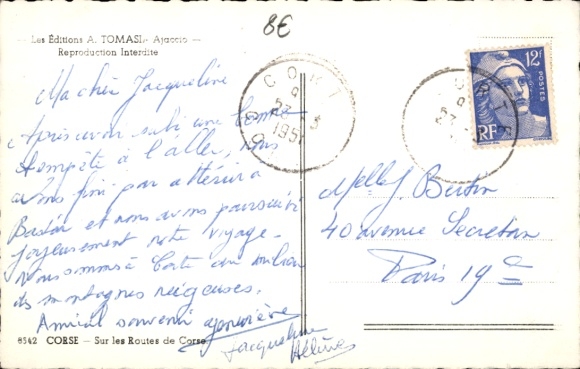 8€
Les Éditions A. TOMASI - Ajaccio
Reproduction Interdite
Ma chère Jacqueline
Après avoir subi une bonne
tempête à l'aller, nous
avons fini par attérir à
Bastia et nous avons poursuivi
joyeusement notre voyage.
Nous sommes à Corte au milieu
des montagnes neigeuses.
Amical souvenir Geneviève
Jacqueline
Hélène
8542 CORSE — Sur les Routes de Corse
CORTE
1951
12F
POSTES
RF
Melle J. Bertin
40 avenue Secretan
Paris 19e